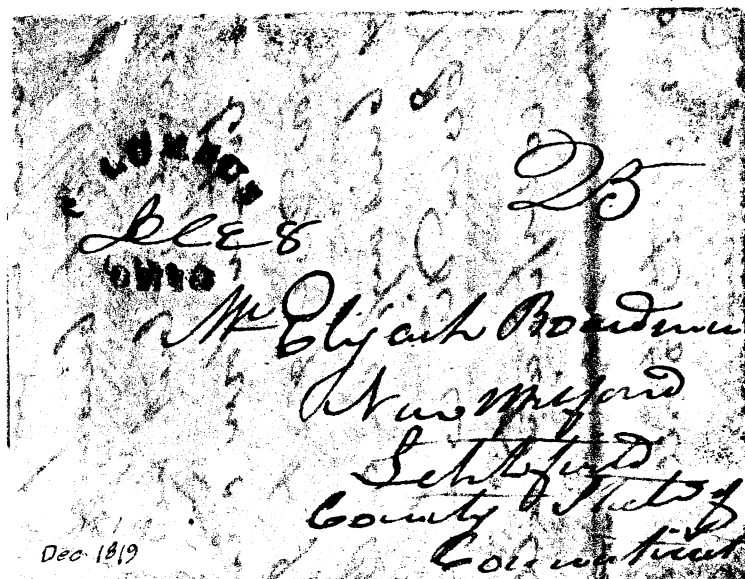 25
Dec 8
OHIO
Mr Elijah Boardman
New Milford
Litchfield
County State of
Connecticut
Dec 1819